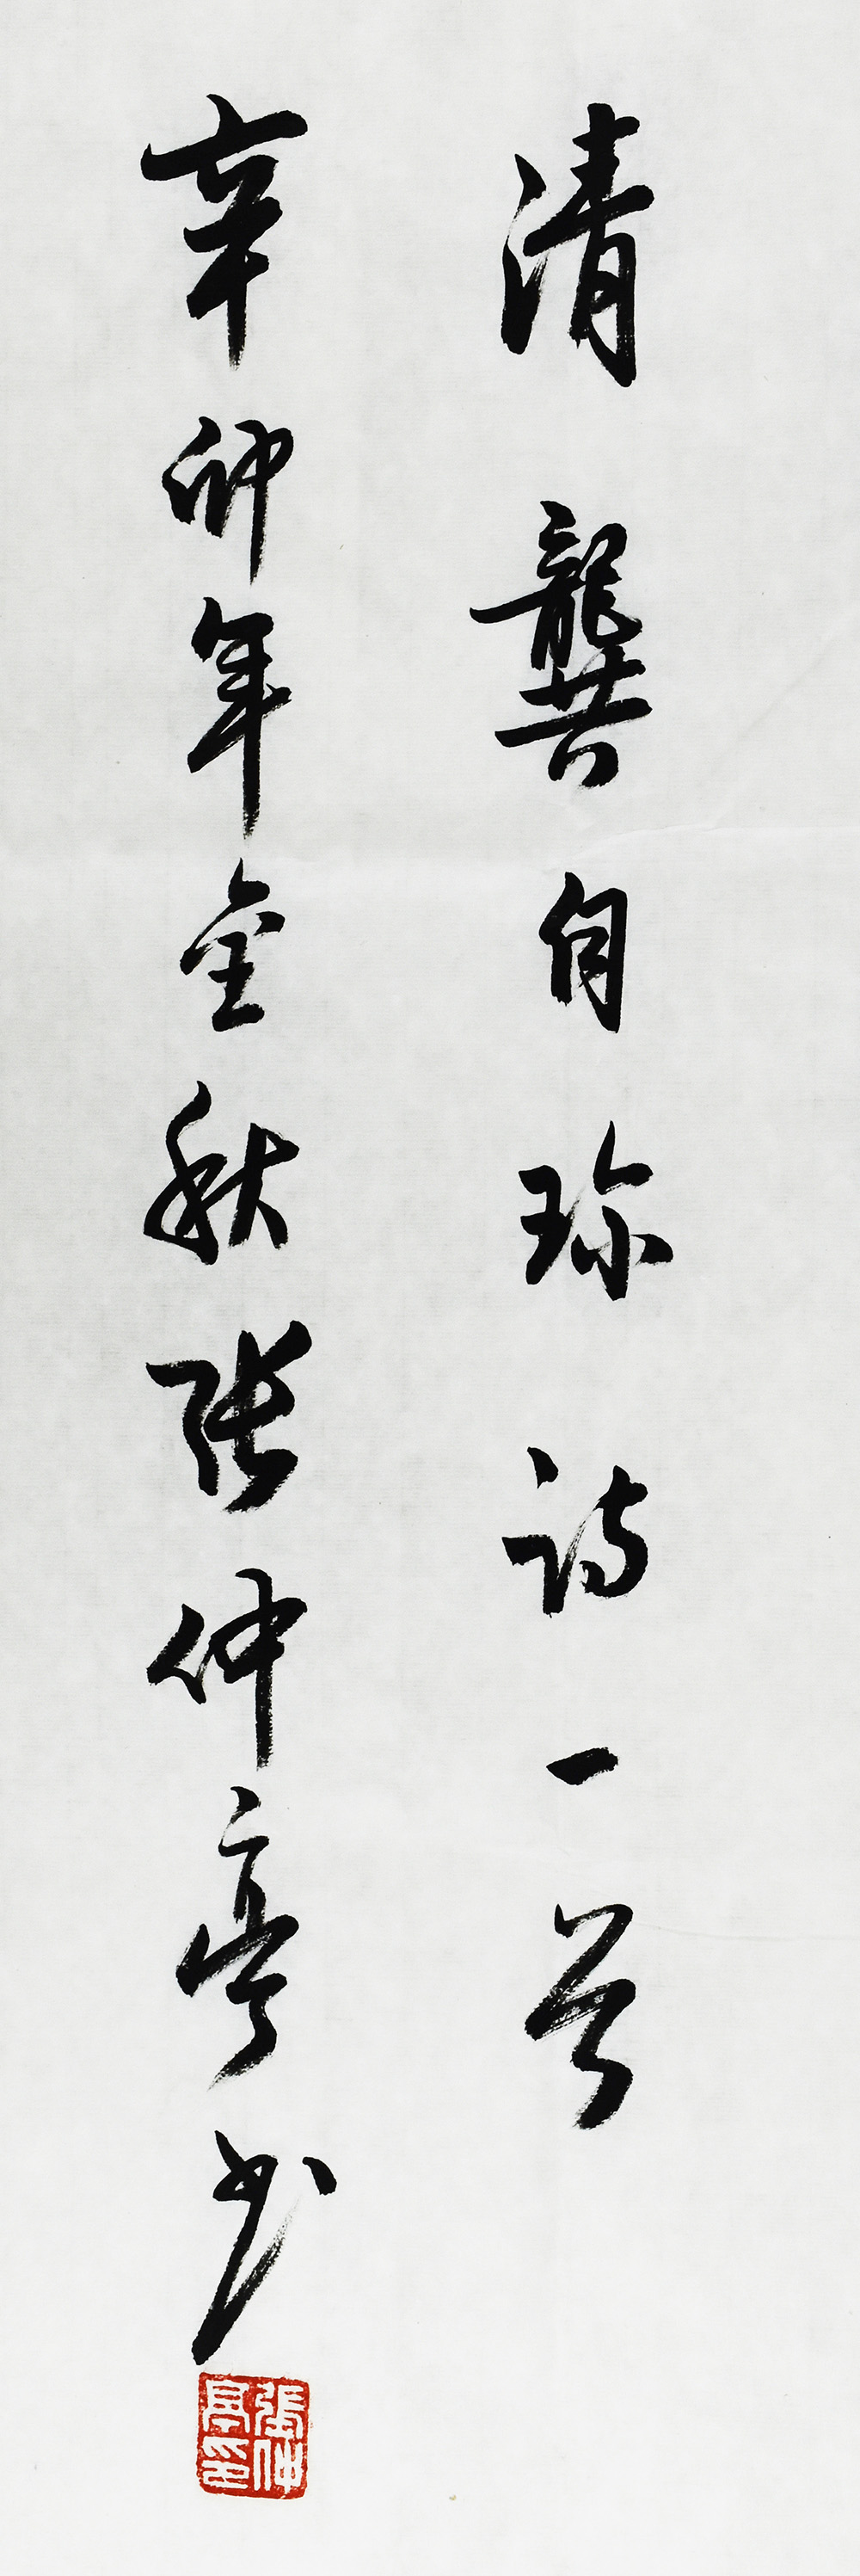 清龔自珍詩一首
辛卯年金秋張仲亭书
張仲亭印